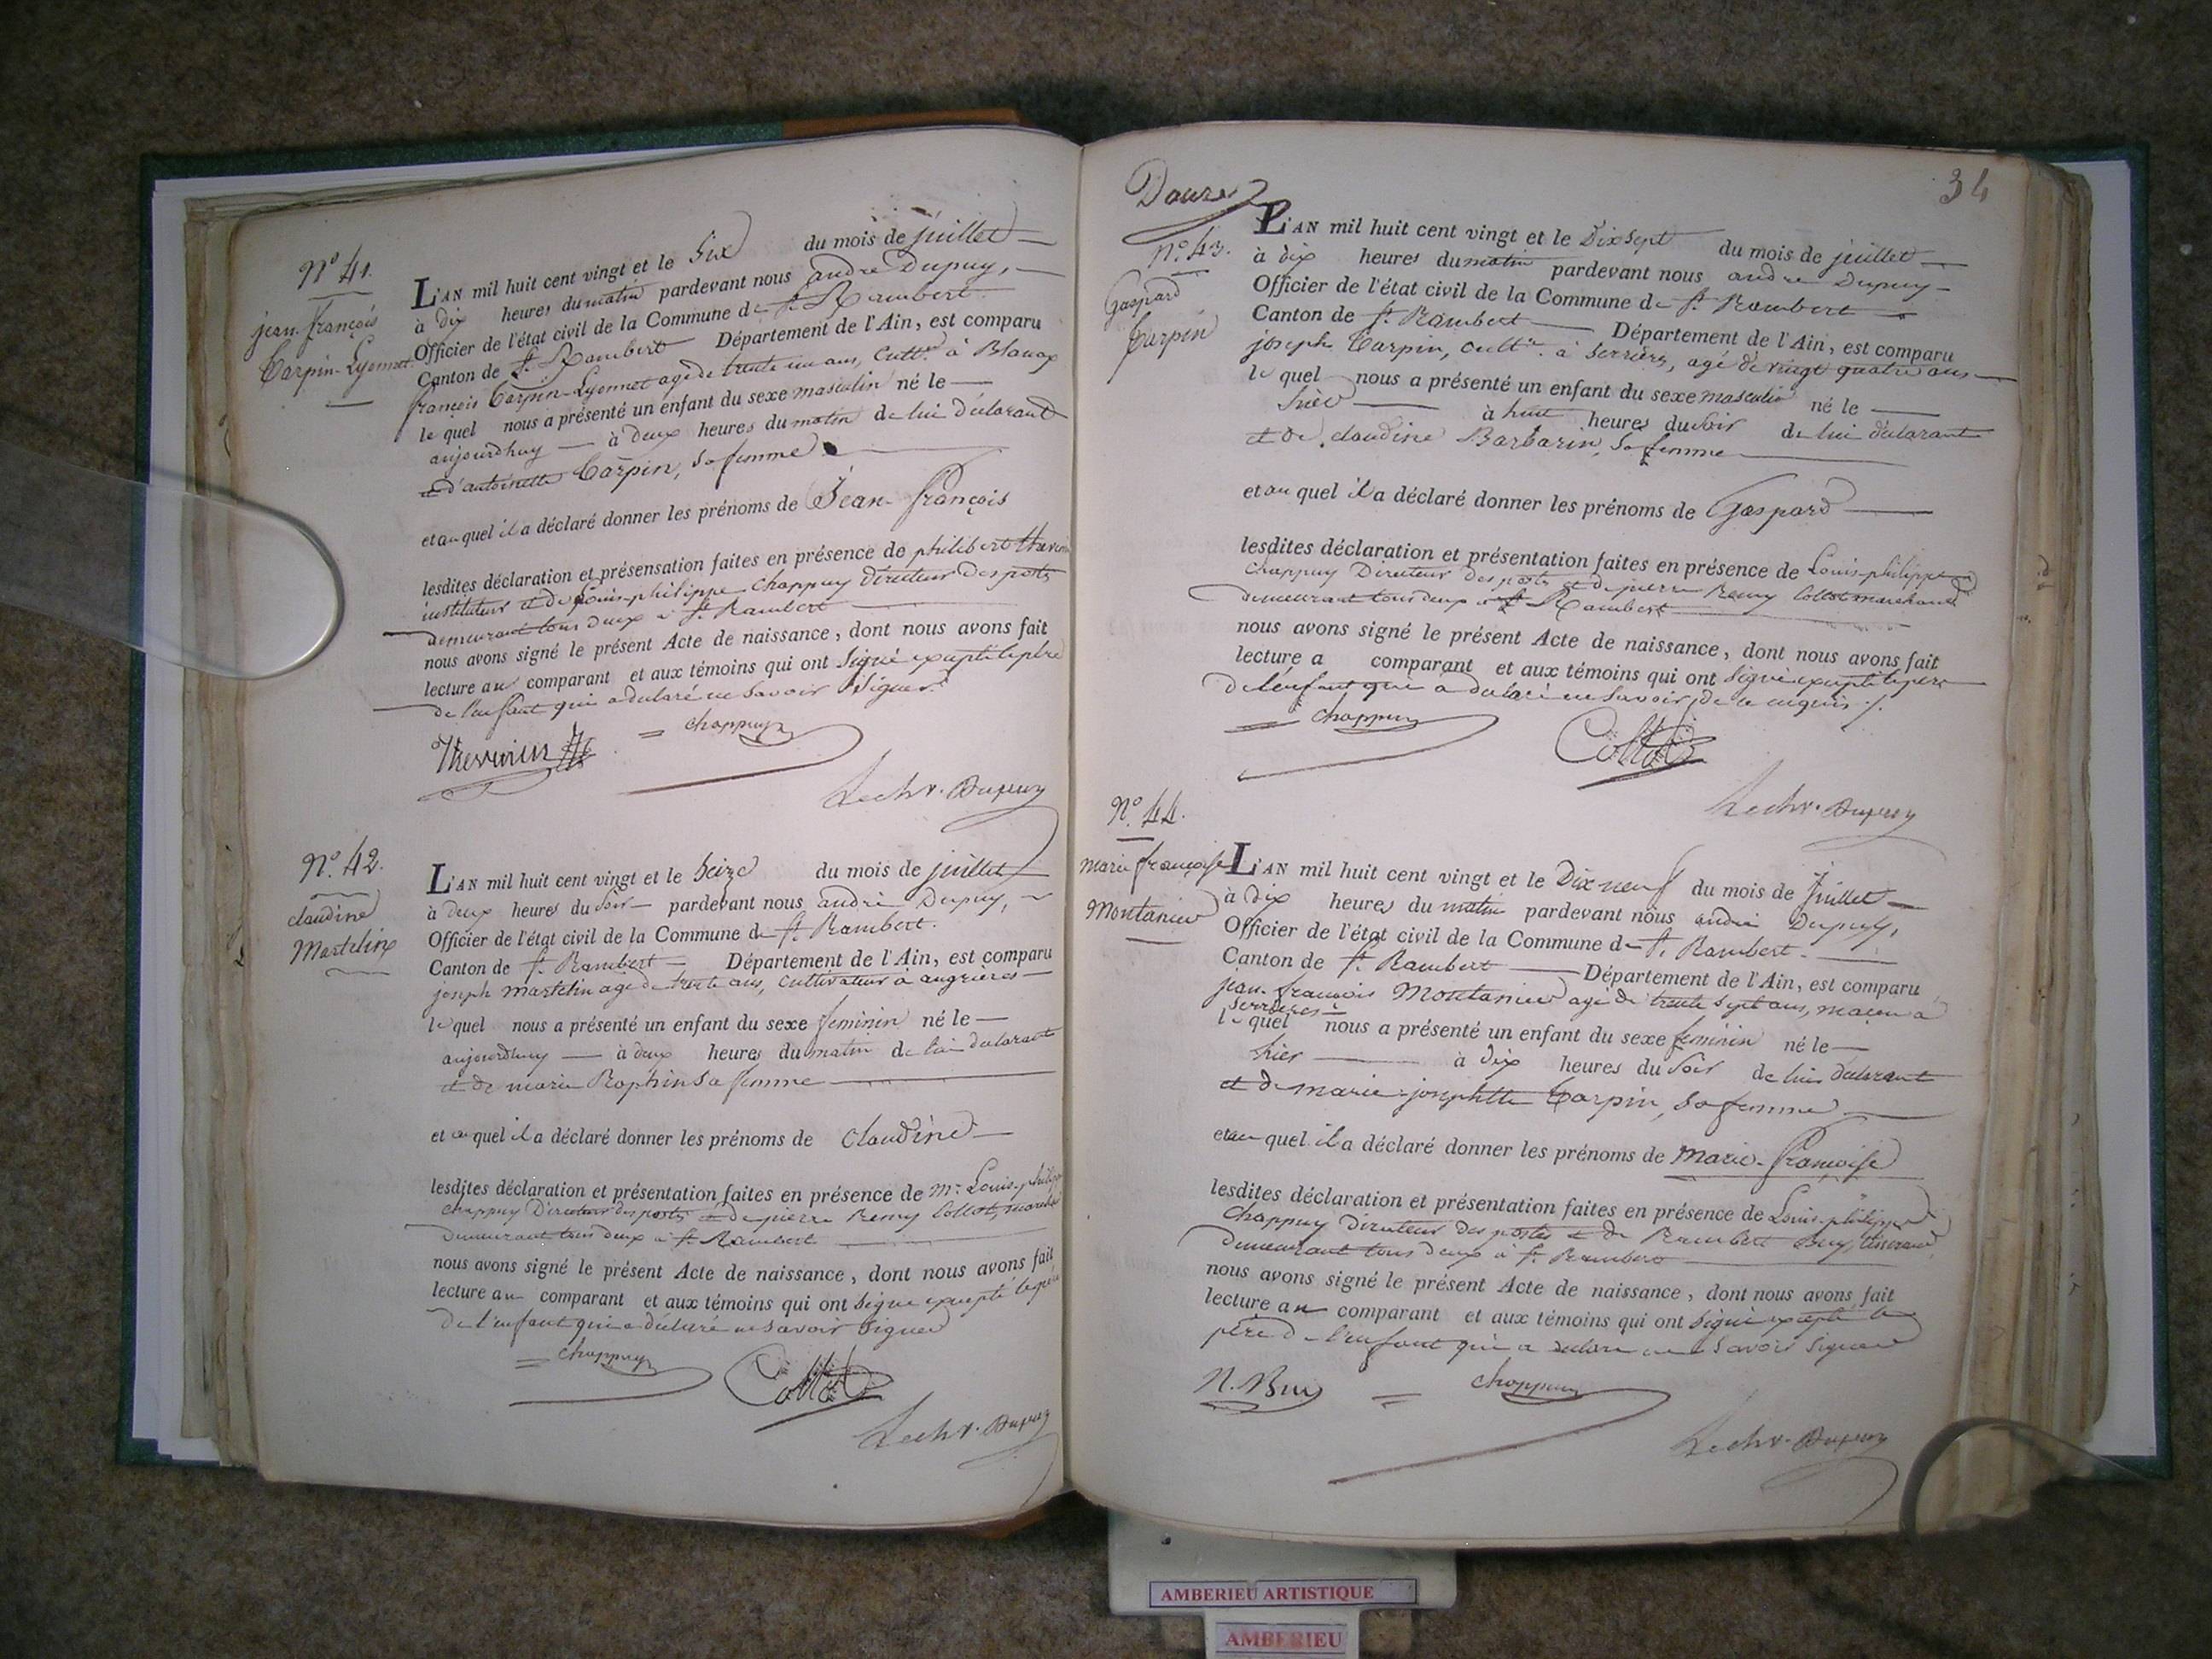 N° 41.
jean-françois
Carpin-Lyonnet.
L'AN mil huit cent vingt et le Six du mois de juillet
à dix heures du matin pardevant nous andré Dupuy,
Officier de l'état civil de la Commune de St. Rambert
Canton de St. Rambert Département de l'Ain, est comparu
françois Carpin-Lyonnet agé de trente un ans, cultr. à Blanaz
le quel nous a présenté un enfant du sexe masculin né le
aujourdhuy à deux heures du matin de lui déclarant
et d'antoinette Carpin, sa femme
et au quel il a déclaré donner les prénoms de Jean-françois
lesdites déclaration et présensation faites en présence de philibert
instituteur et de Louis-philippe Chappuy Directeur des postes
demeurant tous deux à St. Rambert
nous avons signé le présent Acte de naissance, dont nous avons fait
lecture au comparant et aux témoins qui ont Signé excepté le père
de l'enfant qui a declaré ne Savoir Signer.
Thevenin chappuy
Lechr. Dupuy
N° 42.
claudine
Martelin
L'AN mil huit cent vingt et le Seize du mois de juillet
à deux heures du Soir pardevant nous andré Dupuy,
Officier de l'état civil de la Commune de St. Rambert.
Canton de St. Rambert Département de l'Ain, est comparu
joseph martelin agé de trente ans, cultivateur à angrières
le quel nous a présenté un enfant du sexe feminin né le
aujourdhuy à deux heures du matin de lui declarant
et de marie Rophin sa femme
et au quel il a déclaré donner les prénoms de Claudine
lesdites déclaration et présentation faites en présence de Mr. Louis-philippe
chappuy Directeur des postes et de pierre Remy Collot, marchand
demeurant tous deux à St. Rambert
nous avons signé le présent Acte de naissance, dont nous avons fait
lecture au comparant et aux témoins qui ont Signé excepté le père
de l'enfant qui a déclaré ne savoir Signer
chappuy Collot
Lechr. Dupuy
34
Douze
N° 43.
Gaspard
Carpin
L'AN mil huit cent vingt et le Dix Sept du mois de juillet
à dix heures du matin pardevant nous andré Dupuy
Officier de l'état civil de la Commune de St. Rambert
Canton de St. Rambert Département de l'Ain, est comparu
joseph Carpin, cultr. à Serrières, agé de vingt quatre ans
le quel nous a présenté un enfant du sexe masculin né le
hier à huit heures du Soir de lui déclarant
et de claudine Barbarin, Sa femme
et au quel il a déclaré donner les prénoms de Gaspard
lesdites déclaration et présentation faites en présence de Louis-philippe
Chappuy Directeur des postes et de pierre Remy Collot marchand
demeurant tous deux à St. Rambert
nous avons signé le présent Acte de naissance, dont nous avons fait
lecture a comparant et aux témoins qui ont Signé excepté le père
de l'enfant qui a declaré ne Savoir, de ce enquis ./.
chappuy Collot
Lechr. Dupuy
N° 44.
marie françoise
Montanier
L'AN mil huit cent vingt et le Dix neuf du mois de Juillet
à dix heures du matin pardevant nous andré Dupuy,
Officier de l'état civil de la Commune de St. Rambert.
Canton de St. Rambert Département de l'Ain, est comparu
jean-françois Montanier agé de trente Sept ans, maçon à
Serrières
le quel nous a présenté un enfant du sexe feminin né le
hier à dix heures du Soir de lui declarant
et de marie-josephtte Carpin, Sa femme
et au quel il a déclaré donner les prénoms de Marie-françoise
lesdites déclaration et présentation faites en présence de Louis-philippe
Chappuy Directeur des postes et de Rambert Buy, tisserand
demeurant tous deux à St. Rambert
nous avons signé le présent Acte de naissance, dont nous avons fait
lecture au comparant et aux témoins qui ont Signé excepté le
père de l'enfant qui a declaré ne Savoir Signer
R. Buy chappuy
Lechr. Dupuy
AMBERIEU ARTISTIQUE
AMBERIEU